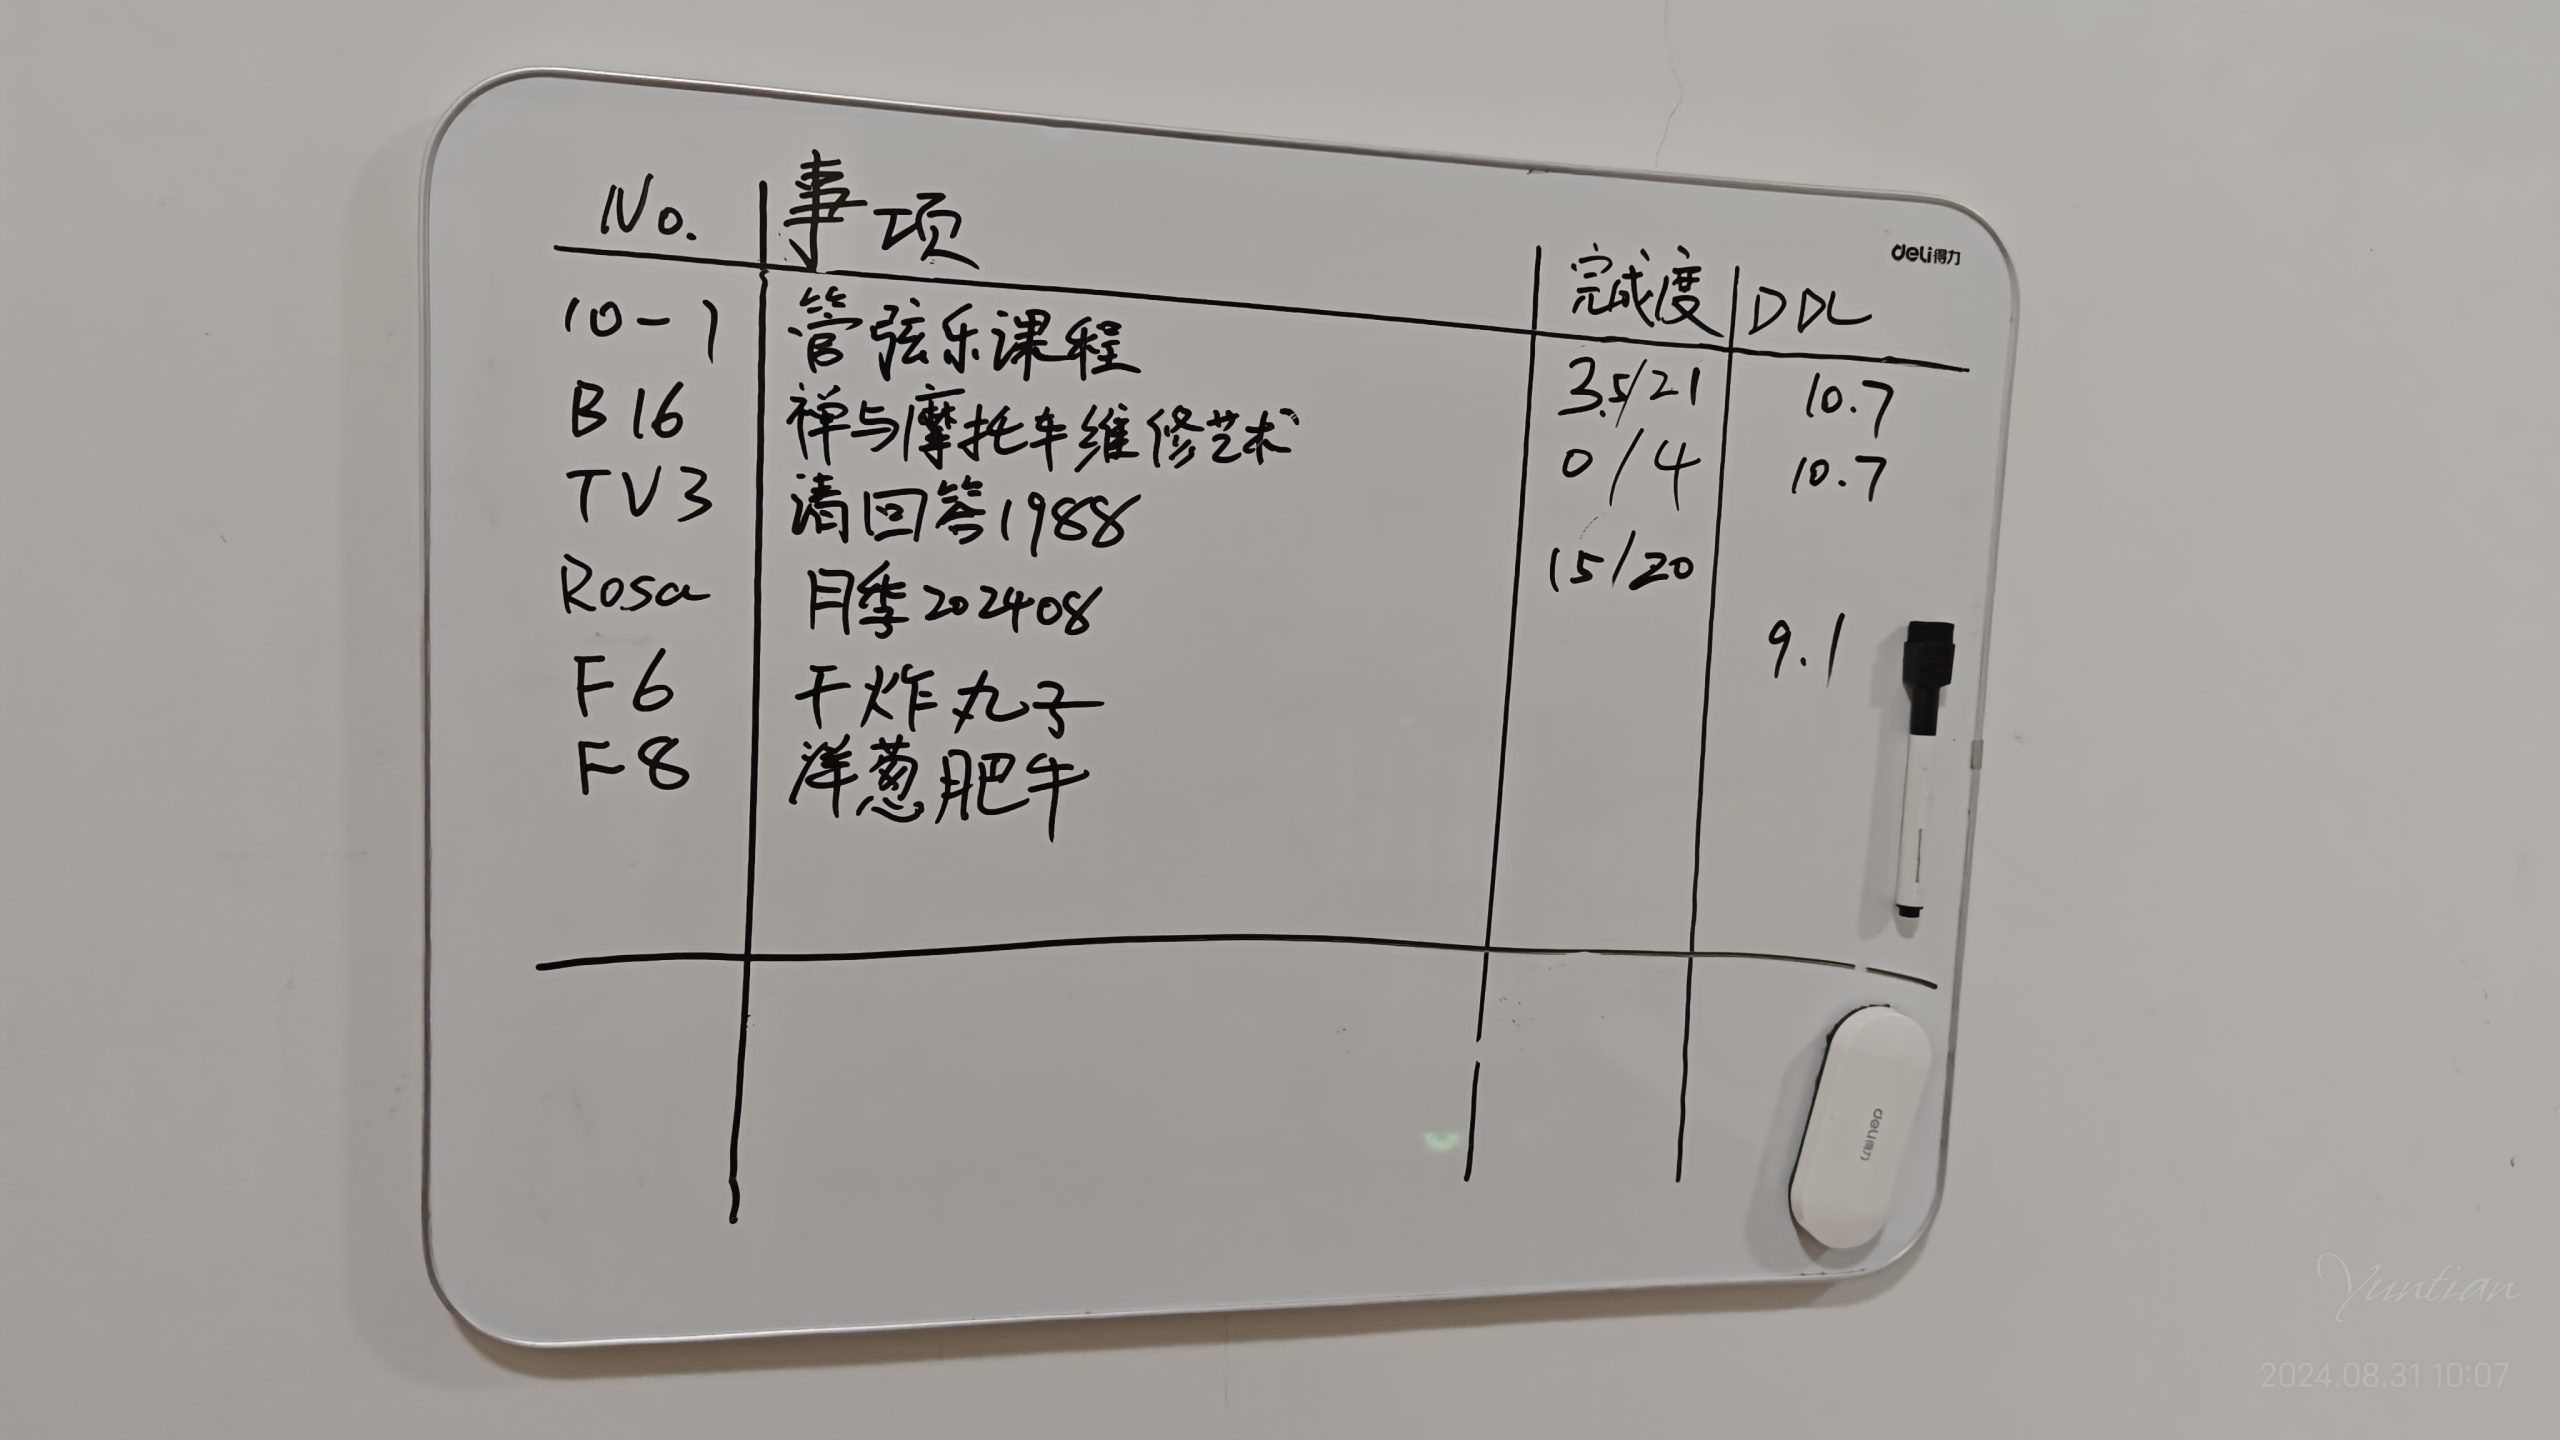 No. 事项 完成度 DDL
deli得力
10-1 管弦乐课程 3.5/21 10.7
B16 禅与摩托车维修艺术 0/4 10.7
TV3 请回答1988 15/20
Rosa 月季202408 9.1
F6 干炸丸子
F8 洋葱肥牛
deli得力
Yuntian
2024.08.31 10:07